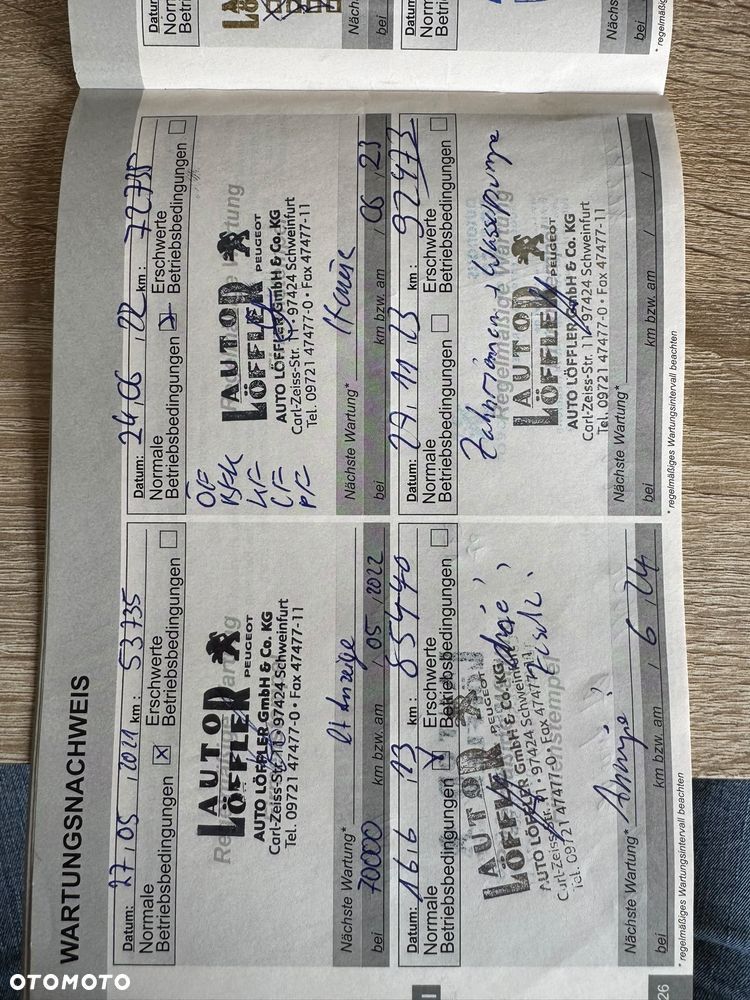 WARTUNGSNACHWEIS
Datum: 27,05,2021 km: 53735
Normale Betriebsbedingungen ☒ Erschwerte Betriebsbedingungen ☐
AUTO
LÖFFLER PEUGEOT
AUTO LÖFFLER GmbH & Co. KG
Carl-Zeiss-Str. 11 • 97424 Schweinfurt
Tel. 09721 47477-0 • Fax 47477-11
Nächste Wartung* lt Anzeige
bei 70000 km bzw. am / 05 / 2022
Datum: 24,06,22 km: 72735
Normale Betriebsbedingungen ☒ Erschwerte Betriebsbedingungen ☐
AUTO
LÖFFLER PEUGEOT
AUTO LÖFFLER GmbH & Co. KG
Carl-Zeiss-Str. 11 • 97424 Schweinfurt
Tel. 09721 47477-0 • Fax 47477-11
Nächste Wartung*
bei km bzw. am / 06 / 23
Datum: 16.6 23 km: 85440
Normale Betriebsbedingungen ☒ Erschwerte Betriebsbedingungen ☐
AUTO
LÖFFLER PEUGEOT
AUTO LÖFFLER GmbH & Co. KG
Carl-Zeiss-Str. 11 • 97424 Schweinfurt
Tel. 09721 47477-0 • Fax 47477-11
Nächste Wartung* Anzeige!
bei km bzw. am / 6 / 24
* regelmäßiges Wartungsintervall beachten
Datum: 29.11.23 km: 92473
Normale Betriebsbedingungen ☐ Erschwerte Betriebsbedingungen ☐
Zahnriemen + Wasserpumpe
Regelmäßige Wartung
AUTO
LÖFFLER PEUGEOT
AUTO LÖFFLER GmbH & Co. KG
Carl-Zeiss-Str. 11 • 97424 Schweinfurt
Tel. 09721 47477-0 • Fax 47477-11
Nächste Wartung*
bei km bzw. am / /
* regelmäßiges Wartungsintervall beachten
26
OTOMOTO